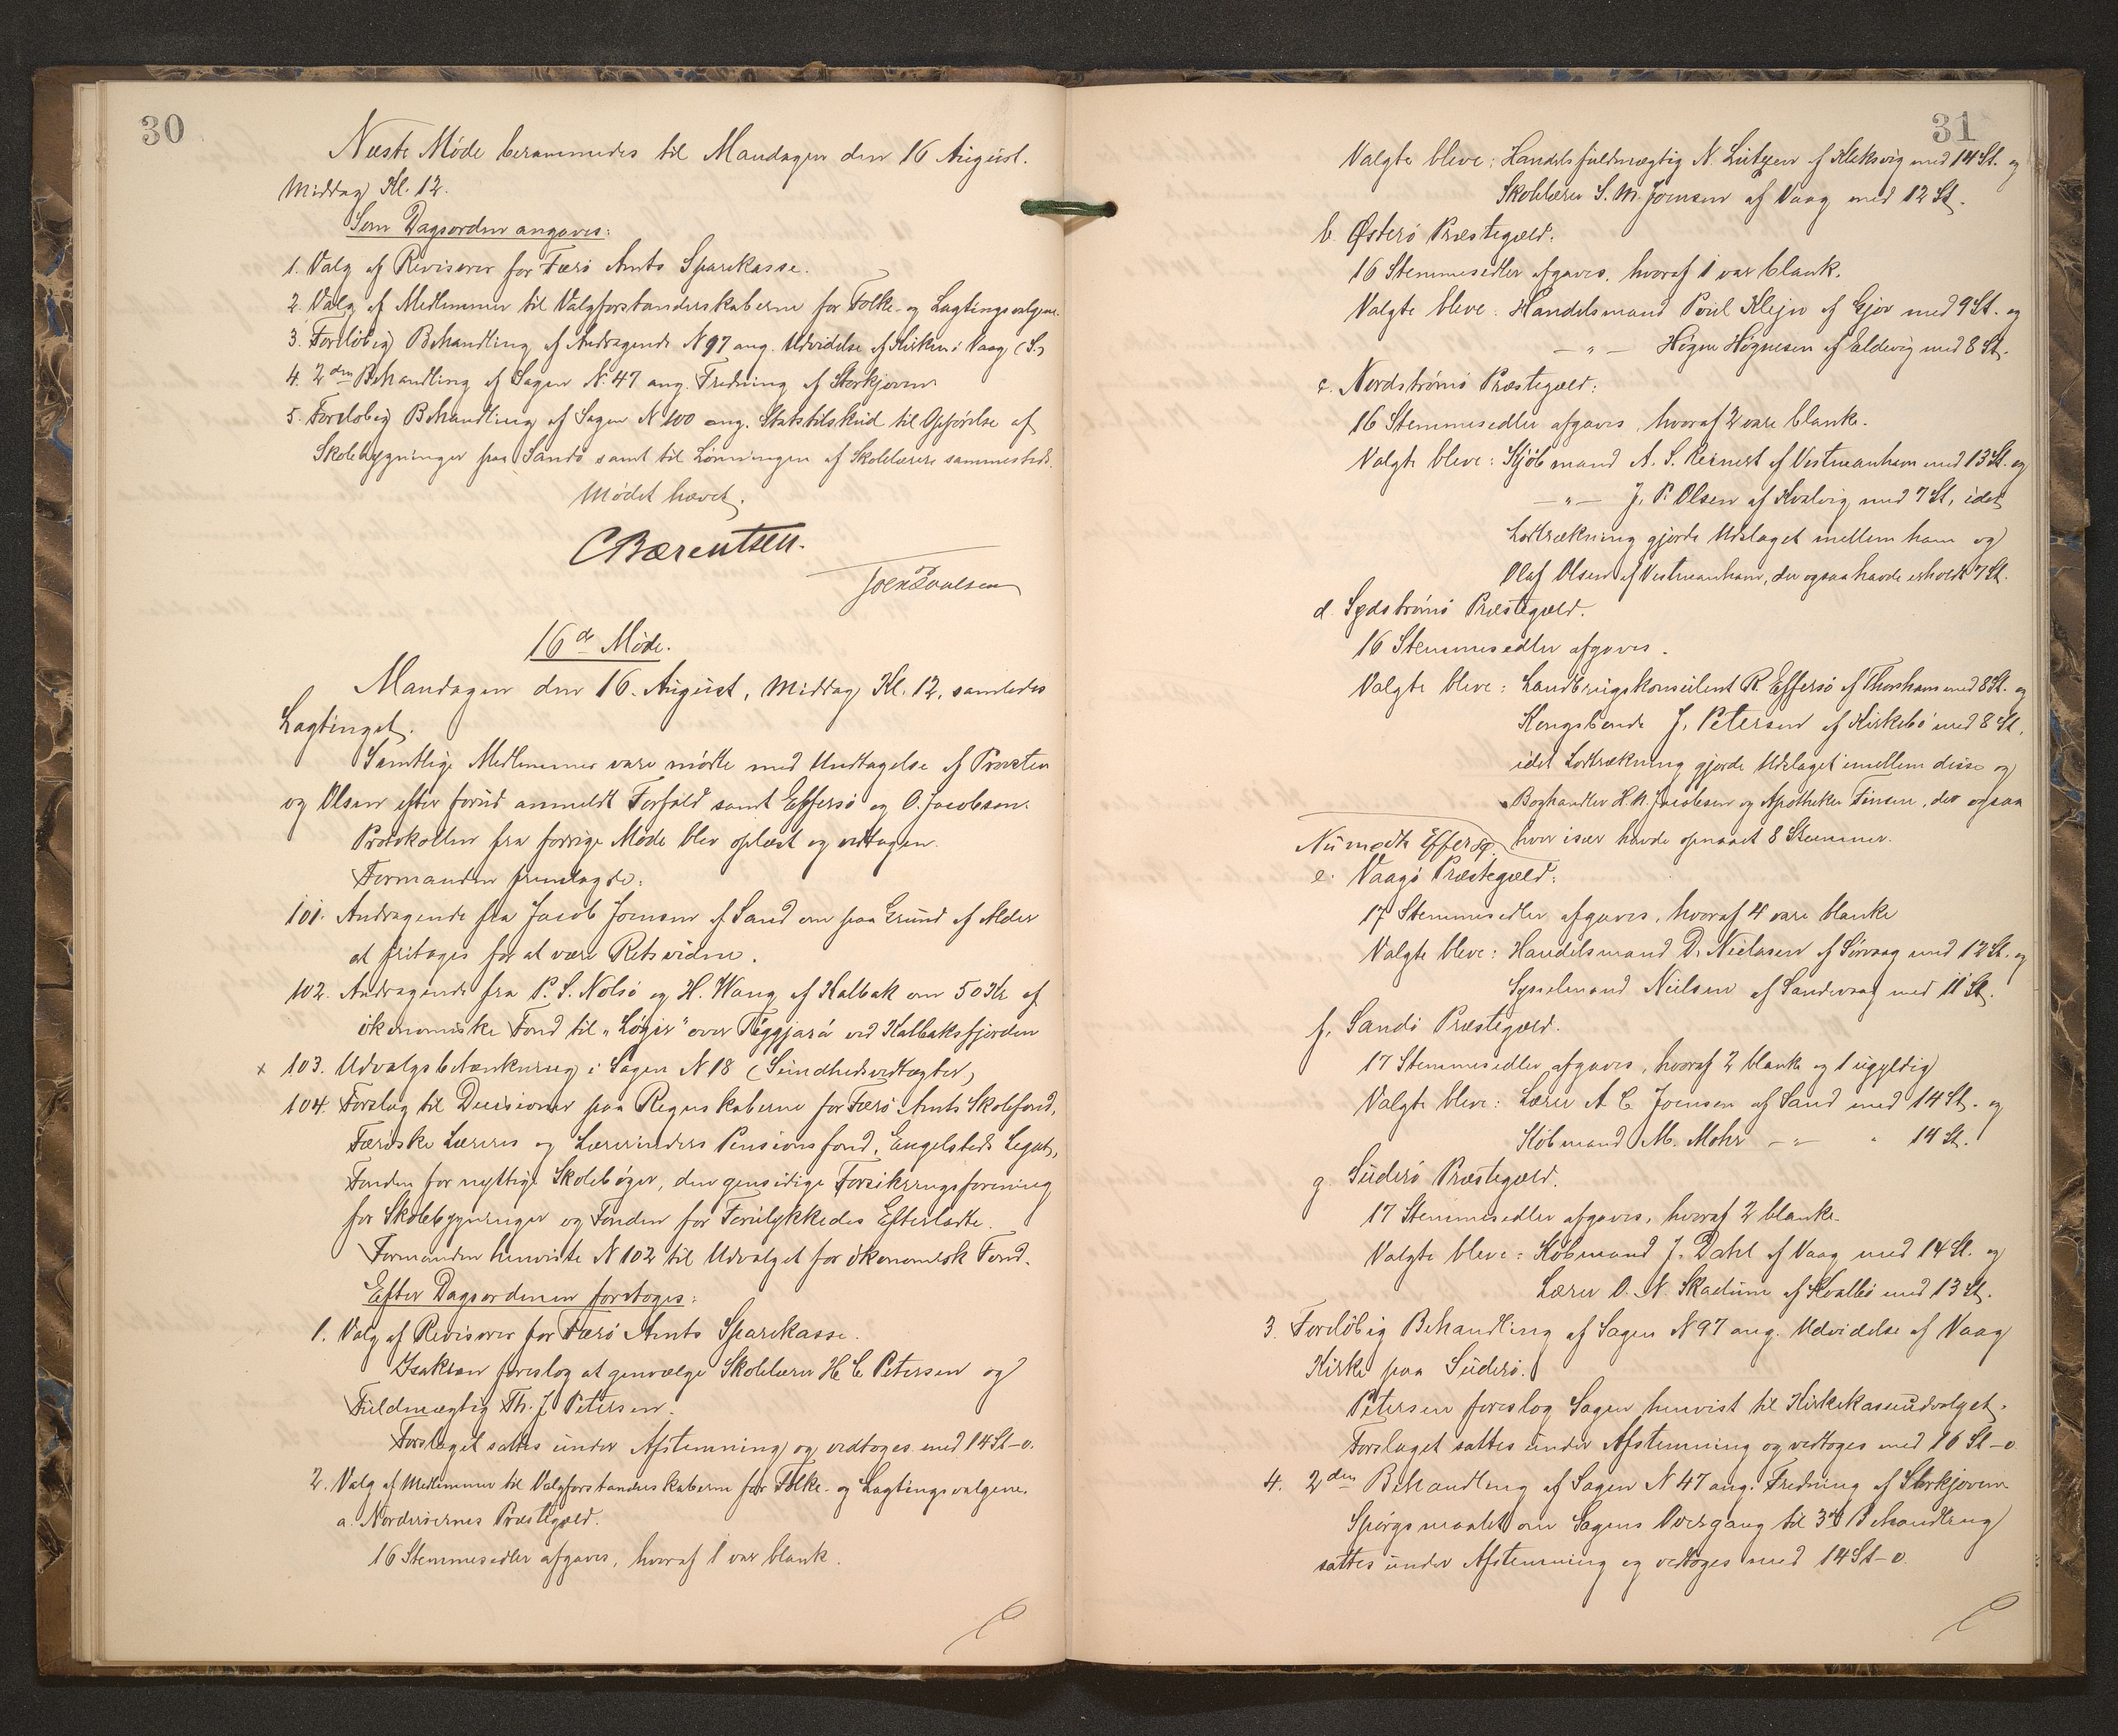 30
Næste Møde berammedes til Mandagen den 16 August.
Middag Kl. 12.
Som Dagsorden angaves:
1. Valg af Revisorer for Færø Amts Sparekasse.
2. Valg af Medlemmer til Valgforstanderskaberne for Folke- og Lagtingsvalgene.
3. Foreløbig Behandling af Andragende N 97 ang. Udvidelse af Kirken i Vaag (S.)
4. 2den Behandling af Sagen N. 47 ang. Fredning af Storkjoven
5. Foreløbig Behandling af Sagen N 100 ang. Statstilskud til Opførelse af
Skolebygninger paa Sandø samt til Lønningen af Skolelærere sammesteds.
Mødet hævet.
C Bærentsen.
Joen Poulsen
16de Møde.
Mandagen den 16. August, Middag Kl. 12, samledes
Lagtinget.
Samtlige Medlemmer vare mødte med Undtagelse af Provsten
og Olsen efter forud anmeldt Forfald samt Effersø og O. Jacobsen.
Protokollen fra forrige Møde blev oplæst og vedtagen.
Formanden fremlagde:
101. Andragende fra Jacob Joensen af Sand om paa Grund af Alder
at fritages for at være Retsvidne.
102. Andragende fra P. S. Nolsø og H. Wang af Kalbak om 50 Kr. af
økonomiske Fond til "Løgir" over Tiggjará ved Kalbaksfjorden
x 103. Udvalgsbetænkning i Sagen N 18 (Sundhedsvedtægter)
104. Forslag til Decisioner paa Regnskaberne for Færø Amts Skolefond,
Færøske Læreres og Lærerinders Pensionsfond, Engelsteds Legat,
Fonden for nyttige Skolebøger, den gensidige Forsikringsforening
for Skolebygninger og Fonden for Forulykkedes Efterladte.
Formanden henviste N 102 til Udvalget for økonomisk Fond.
Efter Dagsordenen foretoges:
1. Valg af Revisorer for Færø Amts Sparekasse.
Isaksen foreslog at genvælge Skolelærer H. C. Petersen og
Fuldmægtig Th. J. Petersen.
Forslaget sattes under Afstemning og vedtoges med 14 St-0.
2. Valg af Medlemmer til Valgforstanderskaberne for Folke- og Lagtingsvalgene.
a. Norderøernes Præstegæld.
16 Stemmesedler afgaves, hvoraf 1 var blank.
31
Valgte bleve: Handelsfuldmægtig N. Lützen af Klaksvig med 14 St. og
Skolelærer S. M. Joensen af Vaag med 12 St.
b. Østerø Præstegæld:
16 Stemmesedler afgaves, hvoraf 1 var blank.
Valgte bleve: Handelsmand Poul Klejn af Gjov med 9 St. og
— " — Høgni Høgnesen af Eldevig med 8 St.
c. Nordstrømø Præstegæld:
16 Stemmesedler afgaves, hvoraf 2 vare blanke.
Valgte bleve: Kjøbmand A. S. Reinert af Vestmanhavn med 13 St. og
— " — J. P. Olsen af Kvalvig med 7 St, idet
Lodtrækning gjorde Udslaget mellem ham og
Olaf Olsen af Vestmanhavn, der ogsaa havde erholdt 7 St.
d. Sydstrømø Præstegæld.
16 Stemmesedler afgaves.
Valgte bleve: Landbrugskonsulent R. Effersø af Thorshavn med 8 St. og
Kongsbonde J. Petersen af Kirkebø med 8 St,
idet Lodtrækning gjorde Udslaget imellem disse og
Boghandler H. N. Jacobsen og Apotheker Finsen, der ogsaa
hver især havde opnaaet 8 Stemmer.
Nu mødte Effersø.
e. Vaagø Præstegæld:
17 Stemmesedler afgaves, hvoraf 4 vare blanke
Valgte bleve: Handelsmand D. Nielasen af Sørvaag med 12 St. og
Sysselmand Nielsen af Sandevaag med 11 St.
f. Sandø Præstegæld.
17 Stemmesedler afgaves, hvoraf 2 blanke og 1 ugyldig
Valgte bleve: Lærer A C Joensen af Sand med 14 St. og
Købmand M. Mohr — " — " 14 St.
g. Suderø Præstegæld.
17 Stemmesedler afgaves, hvoraf 2 blanke.
Valgte bleve: Købmand J. Dahl af Vaag med 14 St. og
Lærer O. N. Skaalum af Kvalbø med 13 St.
3. Foreløbig Behandling af Sagen N 97 ang. Udvidelse af Vaag
Kirke paa Suderø.
Petersen foreslog Sagen henvist til Kirkekasseudvalget.
Forslaget sattes under Afstemning og vedtoges med 16 St-0
4. 2den Behandling af Sagen N 47 ang. Fredning af Storkjoven
Spørgsmaalet om Sagens Overgang til 3die Behandling
sattes under Afstemning og vedtoges med 14 St-0.